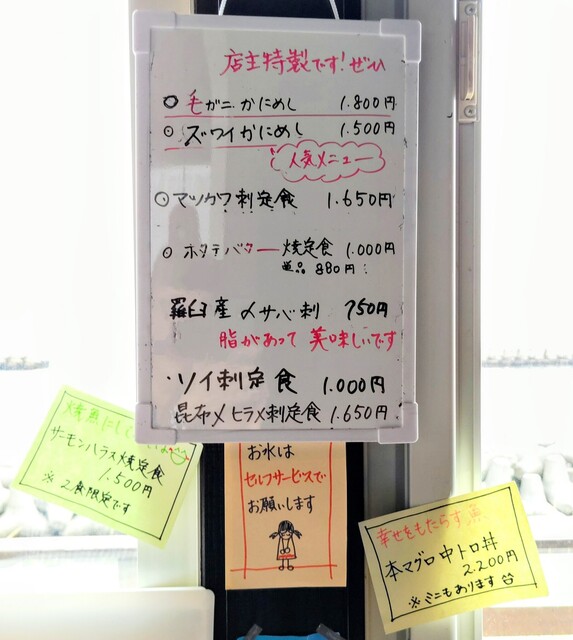 店主特製です!ぜひ
○ 毛ガニかにめし 1.800円
○ ズワイかにめし 1.500円
人気メニュー
○ マツカワ刺定食 1.650円
○ ホタテバター焼定食 1.000円
単品 880円
羅臼産〆サバ刺 750円
脂があって美味しいです
・ソイ刺定食 1.000円
昆布〆ヒラメ刺定食 1.650円
焼魚に
サーモンハラス焼定食
1.500円
※2食限定です
お水は
セルフサービスで
お願いします
幸せをもたらす
本マグロ中トロ丼
2.200円
※ミニもあります